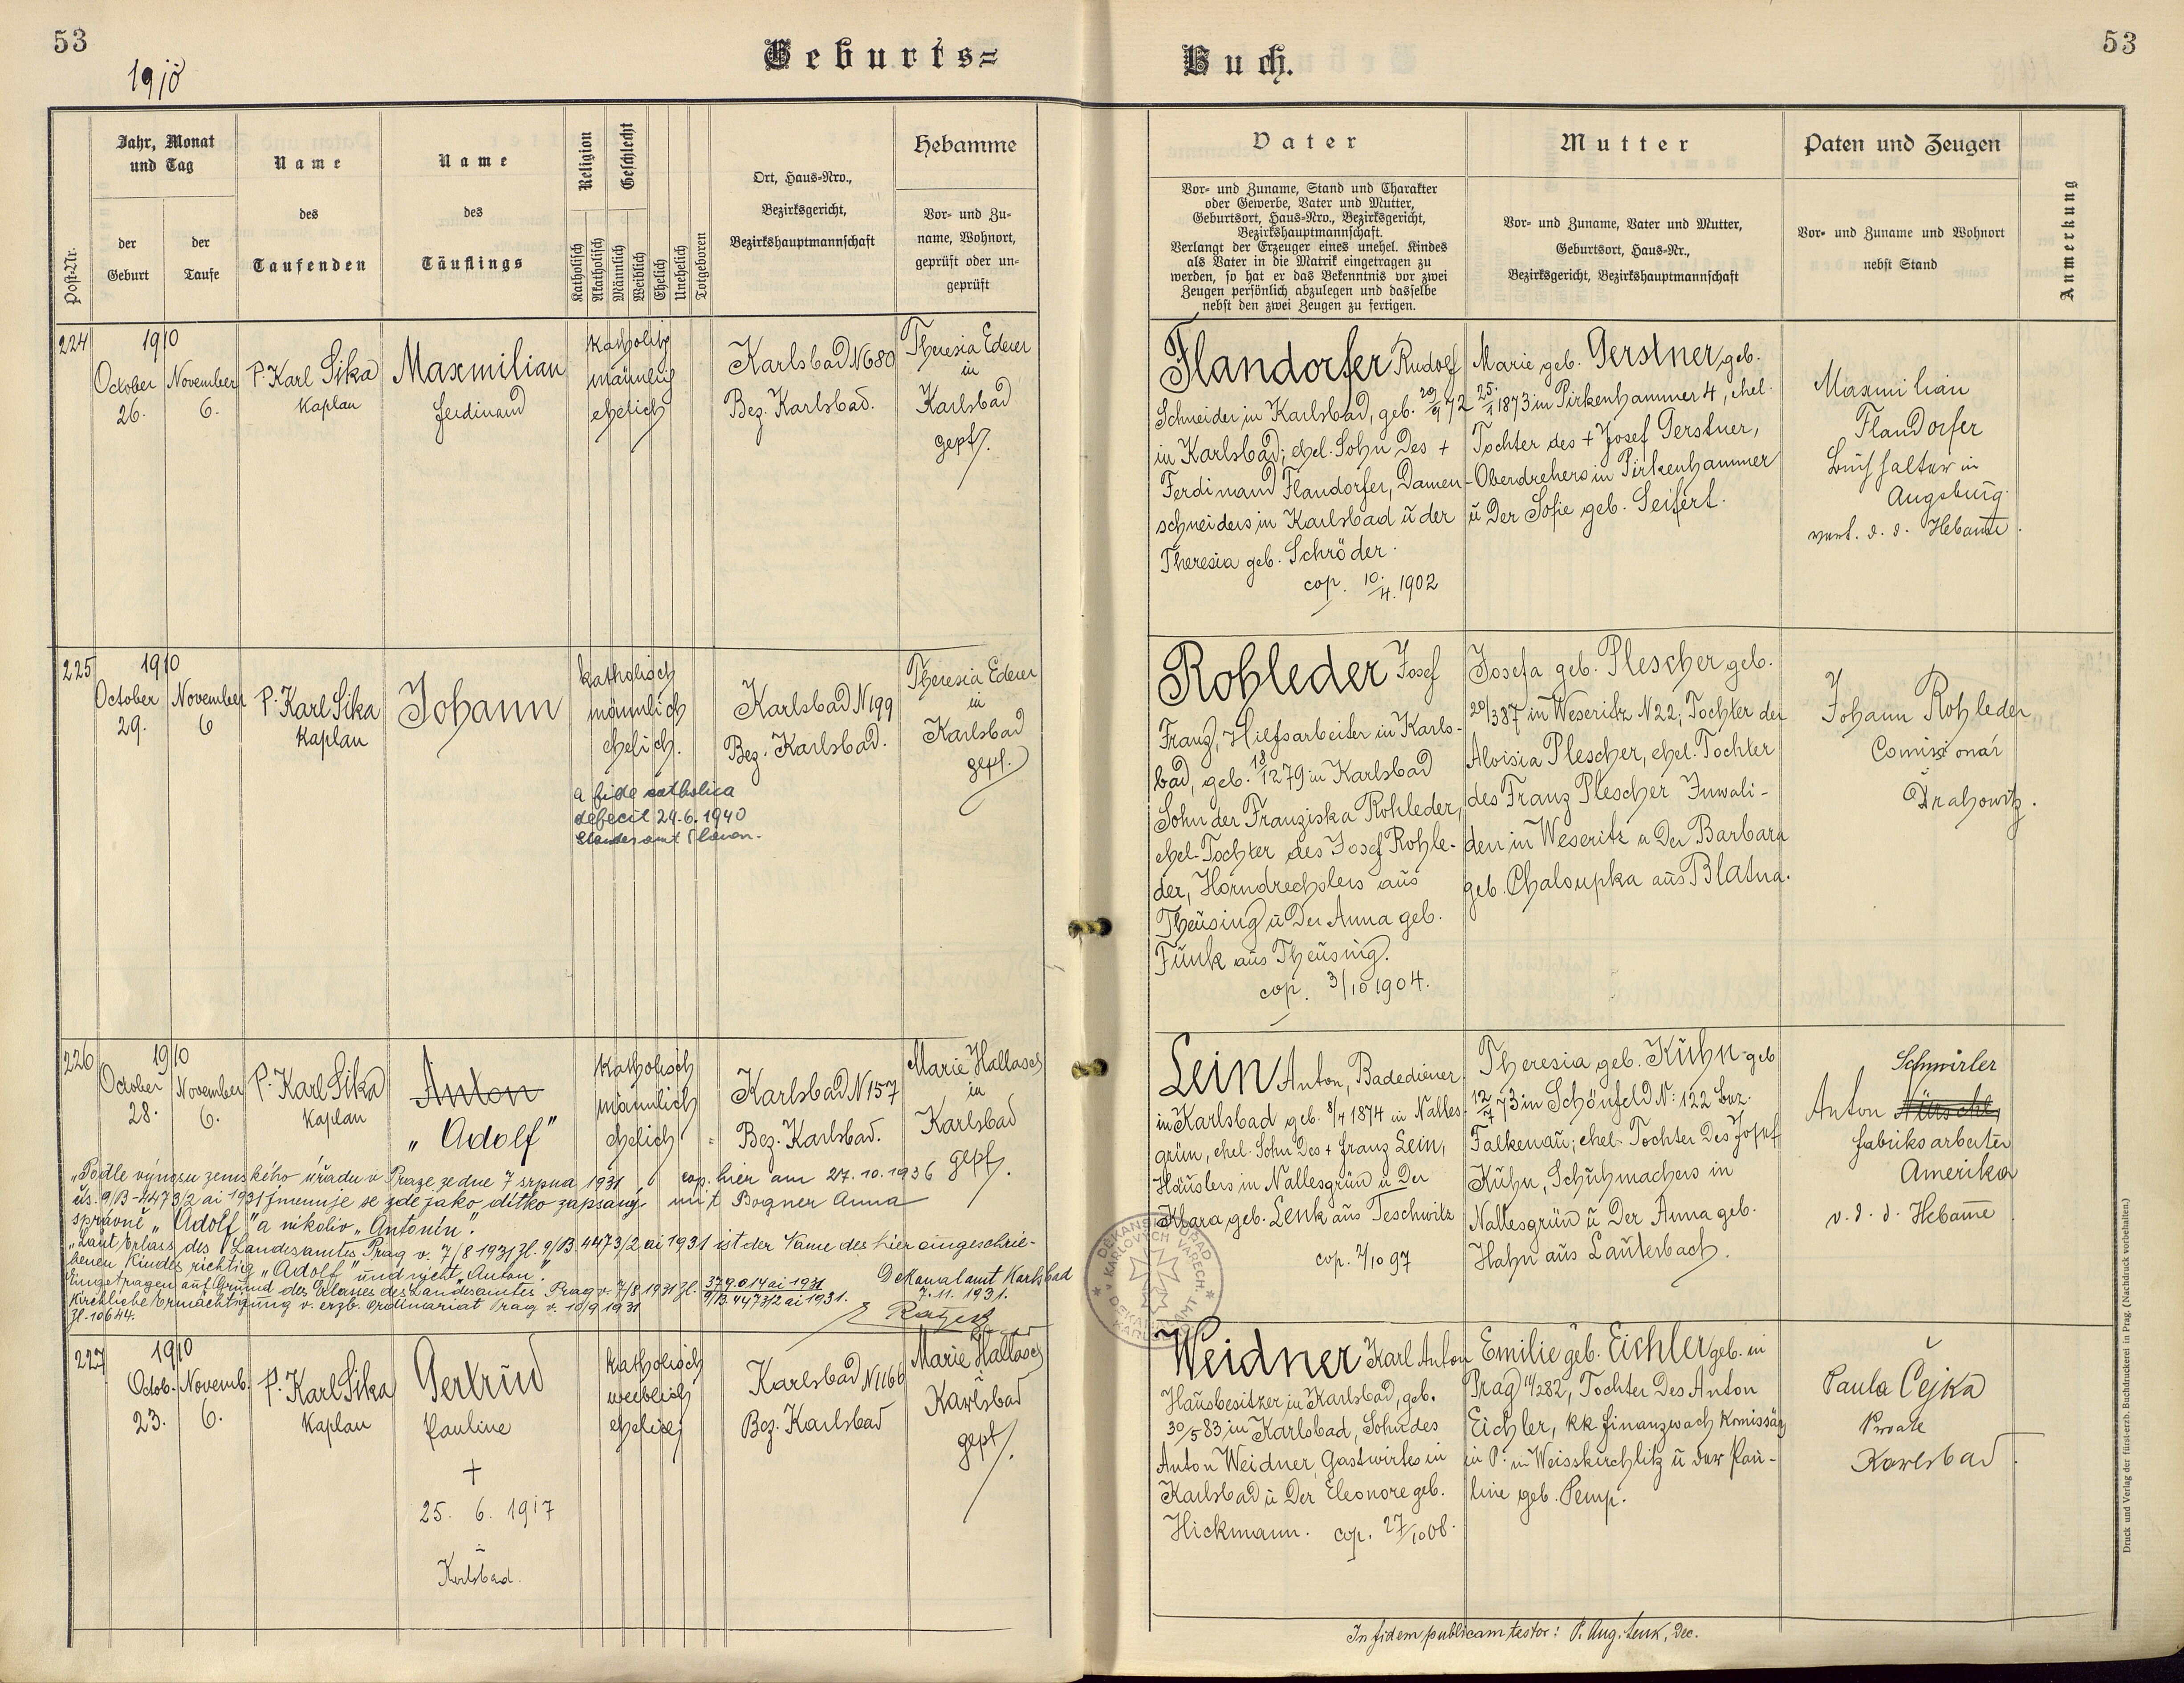 53
1910
Geburts=
Buch.
53
Post-Nr.
Jahr, Monat
und Tag
der
Geburt
der
Taufe
Name
des
Taufenden
Name
des
Täuflings
Religion
Geschlecht
Katholisch
Akatholisch
Männlich
Weiblich
Ehelich
Unehelich
Totgeboren
Ort, Haus-Nro.,
Bezirksgericht,
Bezirkshauptmannschaft
Hebamme
Vor- und Zu-
name, Wohnort,
geprüft oder un-
geprüft
Vater
Vor- und Zuname, Stand und Charakter
oder Gewerbe, Vater und Mutter,
Geburtsort, Haus-Nro., Bezirksgericht,
Bezirkshauptmannschaft.
Verlangt der Erzeuger eines unehel. Kindes
als Vater in die Matrik eingetragen zu
werden, so hat er das Bekenntnis vor zwei
Zeugen persönlich abzulegen und dasselbe
nebst den zwei Zeugen zu fertigen.
Mutter
Vor- und Zuname, Vater und Mutter,
Geburtsort, Haus-Nr.,
Bezirksgericht, Bezirkshauptmannschaft
Paten und Zeugen
Vor- und Zuname und Wohnort
nebst Stand
Anmerkung
224
1910
October
26.
November
6.
P. Karl Sika
Kaplan
Maxmilian
Ferdinand
katholisch
männlich
ehelich
Karlsbad N680
Bez. Karlsbad.
Theresia Ederer
in
Karlsbad
gepf.
Flandorfer Rudolf
Schneider in Karlsbad, geb. 20/9 72
in Karlsbad; ehel. Sohn des +
Ferdinand Flandorfer, Damen-
schneiders in Karlsbad ŭ der
Theresia geb. Schröder.
cop. 10./4. 1902
Marie geb. Gerstner, geb.
25./1 1873 in Pirkenhammer 4, ehel.
Tochter des + Josef Gerstner,
Oberdrehers in Pirkenhammer
ŭ der Sofie geb. Seifert.
Maxmilian
Flandorfer
Buchhalter in
Augsburg.
vert. d. d. Hebamme.
225
1910
October
29.
November
6
P. Karl Sika
Kaplan
Johann
katholisch
männlich
ehelich.
a fide catholica
defecit 29.6.1940
Karlsbad N199
Bez. Karlsbad.
Theresia Ederer
in
Karlsbad
gepf.
Rohleder Josef
Franz, Hilfsarbeiter in Karls-
bad, geb. 18/12 79 in Karlsbad
Sohn der Franziska Rohleder,
ehel. Tochter des Josef Rohle-
der, Horndrechslers aus
Theusing ŭ der Anna geb.
Funk aus Theusing.
cop. 3/10 1904.
Josefa geb. Plescher geb.
20/3 87 in Weseritz N22, Tochter der
Aloisia Plescher, ehel. Tochter
des Franz Plescher Invali-
den in Weseritz u der Barbara
geb. Chaloupka aus Blatna.
Johann Rohleder
Comissionär
Drahowitz.
226
1910
October
28.
November
6.
P. Karl Sika
Kaplan
Anton
"Adolf"
katholisch
männlich
ehelich
Karlsbad N157
Bez. Karlsbad.
Marie Hallasch
in
Karlsbad
gepf.
"Podle výnosu zemského úřadu v Praze ze dne 7 srpna 1931
čís. 9/B-4473/2 ai 1931 jmenuje se zde jako dítko zapsaný
správně "Adolf" a nikoliv "Antonín".
cop. hier am 27. 10. 1936
mit Bogner Anna
"Laut Erlass des Landesamtes Prag v. 7/8 1931 Zl. 9/B. 4473/2 ai 1931 ist der Name des hier eingeschrie-
benen Kindes richtig "Adolf" und nicht "Anton".
Eingetragen auf Grund des Erlasses des Landesamtes Prag v. 7/8 1931 Zl. 379.014 ai 1931
9/B. 4473/2 ai 1931.
Kirchliche Ermächtigung v. erzb. Ordinariat Prag v. 10/9 1931
Zl. 10644.
Dekanalamt Karlsbad
7. 11. 1931.
Lein Anton, Badediener
in Karlsbad geb. 8/4 1874 in Nalles-
grün, ehel. Sohn des + Franz Lein,
Häuslers in Nallesgrün u der
Klara geb. Lenk aus Teschwitz
cop. 2/10 97
Theresia geb. Kühn geb
12/7 73 in Schönfeld N: 122 Bez.
Falkenau; ehel. Tochter des Josef
Kühn, Schuhmachers in
Nallesgrün ŭ der Anna geb.
Hahn aus Lauterbach.
Schwirler
Anton
Fabriksarbeiter
Amerika
v. d. d. Hebamme
227
1910
Octob.
23.
Novemb.
6.
P. Karl Sika
Kaplan
Gertrud
Pauline
+
25. 6. 1917
Karlsbad.
katholisch
weiblich
ehelich
Karlsbad N1166
Bez. Karlsbad
Marie Hallasch
Karlsbad
gepf.
Weidner Karl Anton
Hausbesitzer in Karlsbad, geb.
30/5 83 in Karlsbad, Sohn des
Anton Weidner, Gastwirtes in
Karlsbad ŭ der Eleonore geb.
Hickmann. cop. 27/10 08.
Emilie geb. Eichler geb. in
Prag 11/2 82, Tochter des Anton
Eichler, kk. Finanzwach Komissärs
in P. in Weisskirchlitz ŭ der Pau-
line geb. Pemp.
Paula Čejka
Private
Karlsbad.
In fidem publicam testor: P. Aug. Lenk, Dec.
Druck und Verlag der fürst-erzb. Buchdruckerei in Prag. (Nachdruck vorbehalten.)